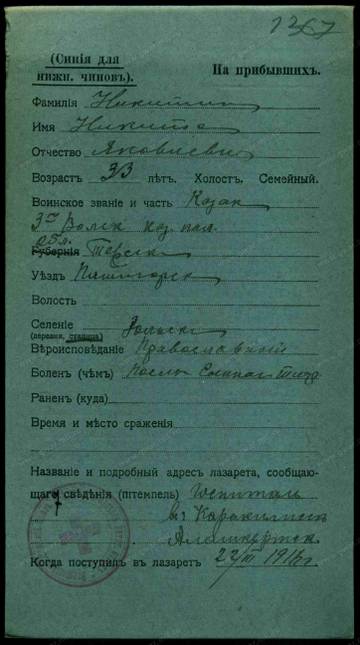 1367
(Синія для
нижн. чиновъ).
На прибывшихъ.
Фамилія Никитин
Имя Никита
Отчество Яковлевич
Возрастъ 33 лѣтъ. Холост. Семейный.
Воинское званіе и часть Казак
3го Волск каз. пол.
обл.
Губернія Терск
Уѣздъ Пятигорск
Волость
Селеніе
(деревня, станица)
Вѣроисповѣданіе Православный
Боленъ (чѣмъ) тифа
Раненъ (куда)
Время и мѣсто сраженія
Названіе и подробный адресъ лазарета, сообщаю-
щаго свѣдѣнія (штемпель) Госпиталь
в г Каракилиса
Алашкертск
Когда поступилъ въ лазаретъ 22/III 1916 г.